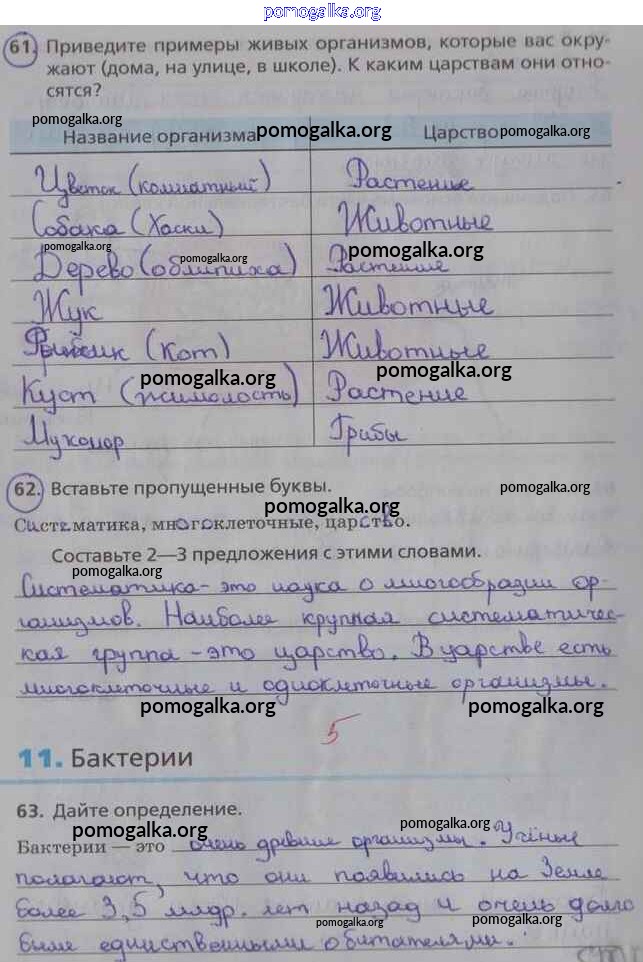 pomogalka.org
61. Приведите примеры живых организмов, которые вас окру-
жают (дома, на улице, в школе). К каким царствам они отно-
сятся?
pomogalka.org pomogalka.org
Название организма pomogalka.org Царство pomogalka.org
Цветок (комнатный) Растение
Собака (Хаски) Животные
pomogalka.org pomogalka.org pomogalka.org
Дерево (облипиха) Растение
Жук Животные
Рыбик (Кот) Животные
pomogalka.org pomogalka.org
Куст (жимолость) Растение
Мухомор Грибы
62. Вставьте пропущенные буквы. pomogalka.org
pomogalka.org
Систематика, многоклеточные, царство.
pomogalka.org
Составьте 2—3 предложения с этими словами.
pomogalka.org
Систематика - это наука о многообразии ор-
ганизмов. Наиболее крупная систематичес-
кая группа - это царство. В царстве есть
многоклеточные и одноклеточные организмы.
pomogalka.org pomogalka.org
5
11. Бактерии
63. Дайте определение.
pomogalka.org pomogalka.org
Бактерии — это очень древние организмы. Учёные
полагают, что они появились на Земле
pomogalka.org
более 3,5 млрд. лет назад и очень долго
pomogalka.org
были единственными обитателями.
pomogalka.org